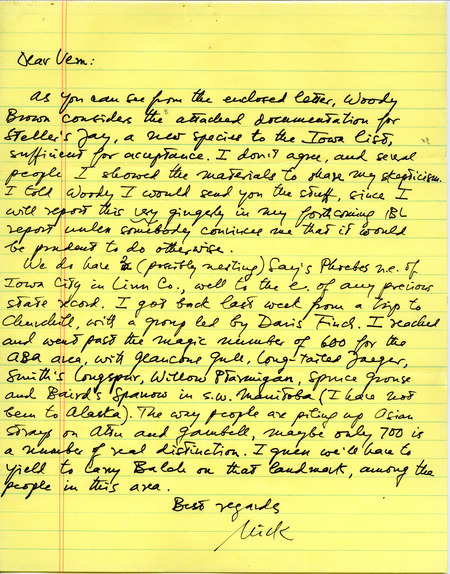 Dear Vern:
As you can see from the enclosed letter, Woody
Brown considers the attached documentation for
Steller's Jay, a new species to the Iowa list,
sufficient for acceptance. I don't agree, and several
people I showed the materials to share my skepticism.
I told Woody I would send you the stuff, since I
will report this very gingerly in my forthcoming IBL
report unless somebody convinces me that it would
be prudent to do otherwise.
We do have 2 (possibly nesting) Say's Phoebes n.e. of
Iowa City in Linn Co., well to the e. of any previous
state record. I got back last week from a trip to
Churchill, with a group led by Davis Finch. I reached
and went past the magic number of 600 for the
ABA area, with Glaucous Gull, Long-tailed Jaeger,
Smith's Longspur, Willow Ptarmigan, Spruce Grouse
and Baird's Sparrow in s.w. Manitoba (I have not
been to Alaska). The way people are piling up Asian
strays on Attu and Gambell, maybe only 700 is
a number of real distinction. I guess we'll have to
yield to Larry Balch on that landmark, among the
people in this area.
Best regards
Nick